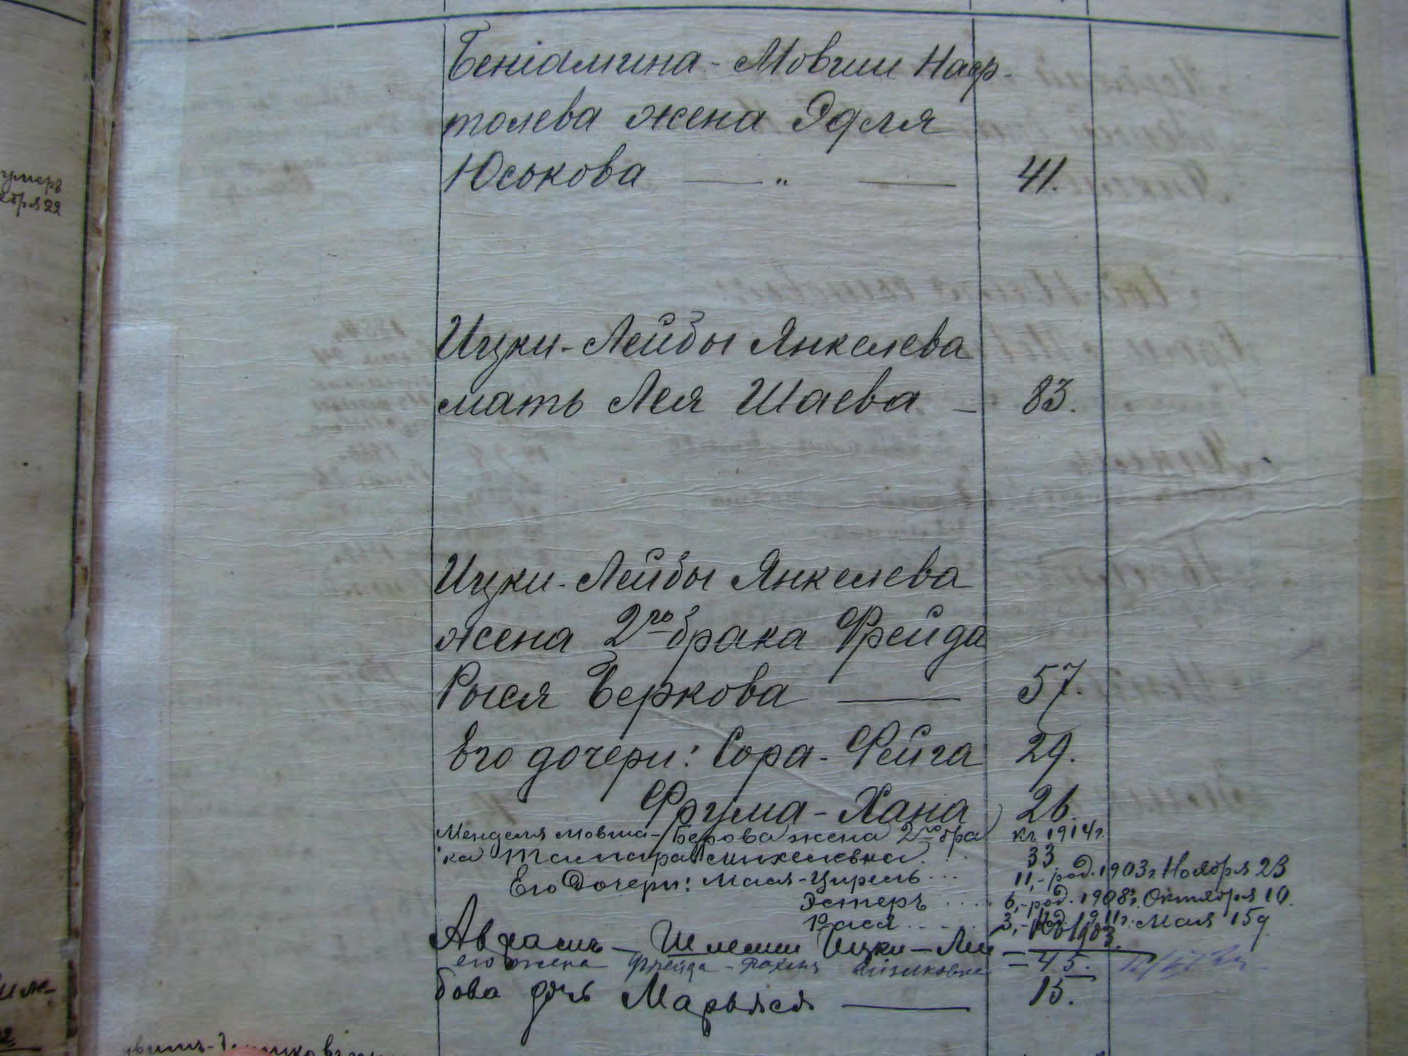 умеръ
Беніамина-Мовши Наф-
толева жена Эдля
Юськова — " — 41.
Ицки-Лейбы Янкелева
мать Лея Шаева — 83.
Ицки-Лейбы Янкелева
жена 2го брака Фрейда
Рыся Беркова — 57.
Его дочери: Сора-Фейга 29.
Фрума-Хана 26.
Менделя Мовша-Берова жена 2го бра къ 1914 г.
ка Тамара 33
Его дочери: Мася-Цирель ... 11,-род. 1903 г. Ноября 23
Эстеръ .... 6,-род. 1908 г. Октября 10.
3,- 1911 г. Мая 15
Авраамъ-Шлемы Ицки-Лей 1903.
его жена Фрейда-Рохля - 45.
бова дочь Марьяся — 15.